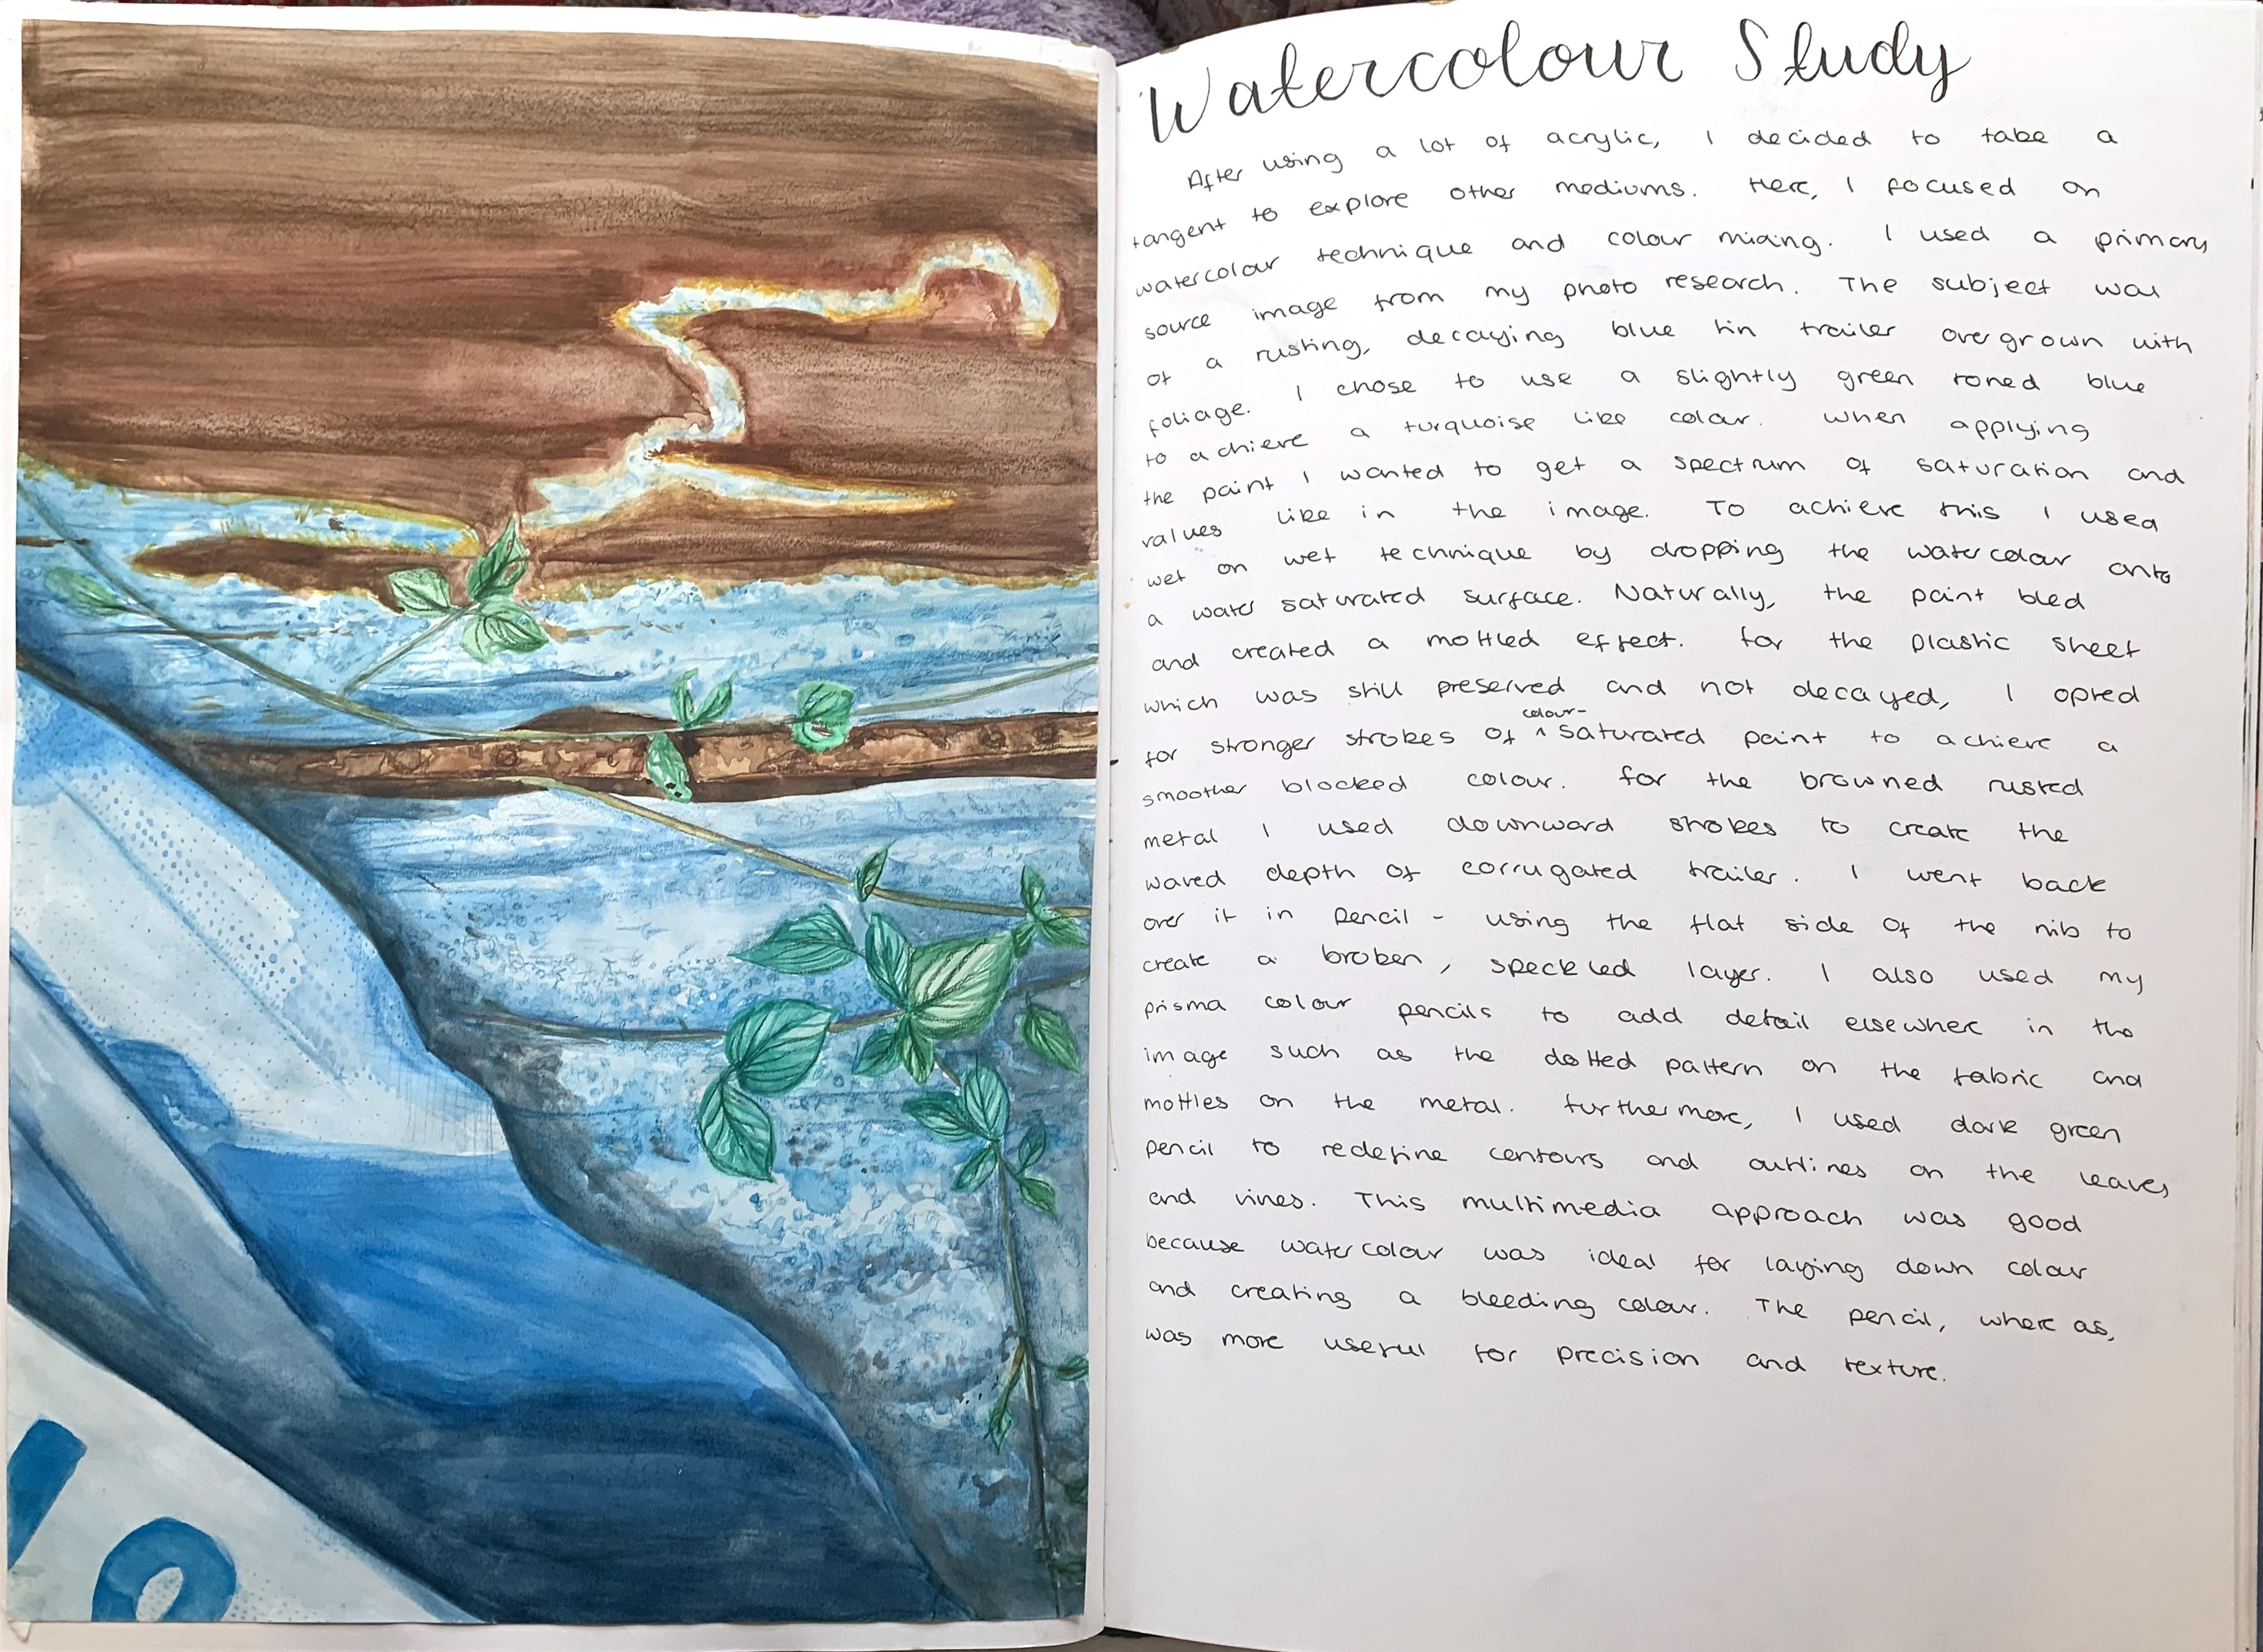 Watercolour Study
After using a lot of acrylic, I decided to take a
tangent to explore other mediums. Here, I focused on
watercolour technique and colour mixing. I used a primary
source image from my photo research. The subject was
of a rusting, decaying blue tin trailer overgrown with
foliage. I chose to use a slightly green toned blue
to achieve a turquoise like colour. When applying
the paint I wanted to get a spectrum of saturation and
values like in the image. To achieve this I used
wet on wet technique by dropping the watercolour onto
a water saturated surface. Naturally, the paint bled
and created a mottled effect. For the plastic sheet
which was still preserved and not decayed, I opted
for stronger strokes of colour-saturated paint to achieve a
smoother blocked colour. For the browned rusted
metal I used downward strokes to create the
waved depth of corrugated trailer. I went back
over it in pencil - using the flat side of the nib to
create a broken, speckled layer. I also used my
prisma colour pencils to add detail elsewhere in the
image such as the dotted pattern on the fabric and
mottles on the metal. Furthermore, I used dark green
pencil to redefine contours and outlines on the leaves
and vines. This multimedia approach was good
because watercolour was ideal for laying down colour
and creating a bleeding colour. The pencil, where as,
was more useful for precision and texture.